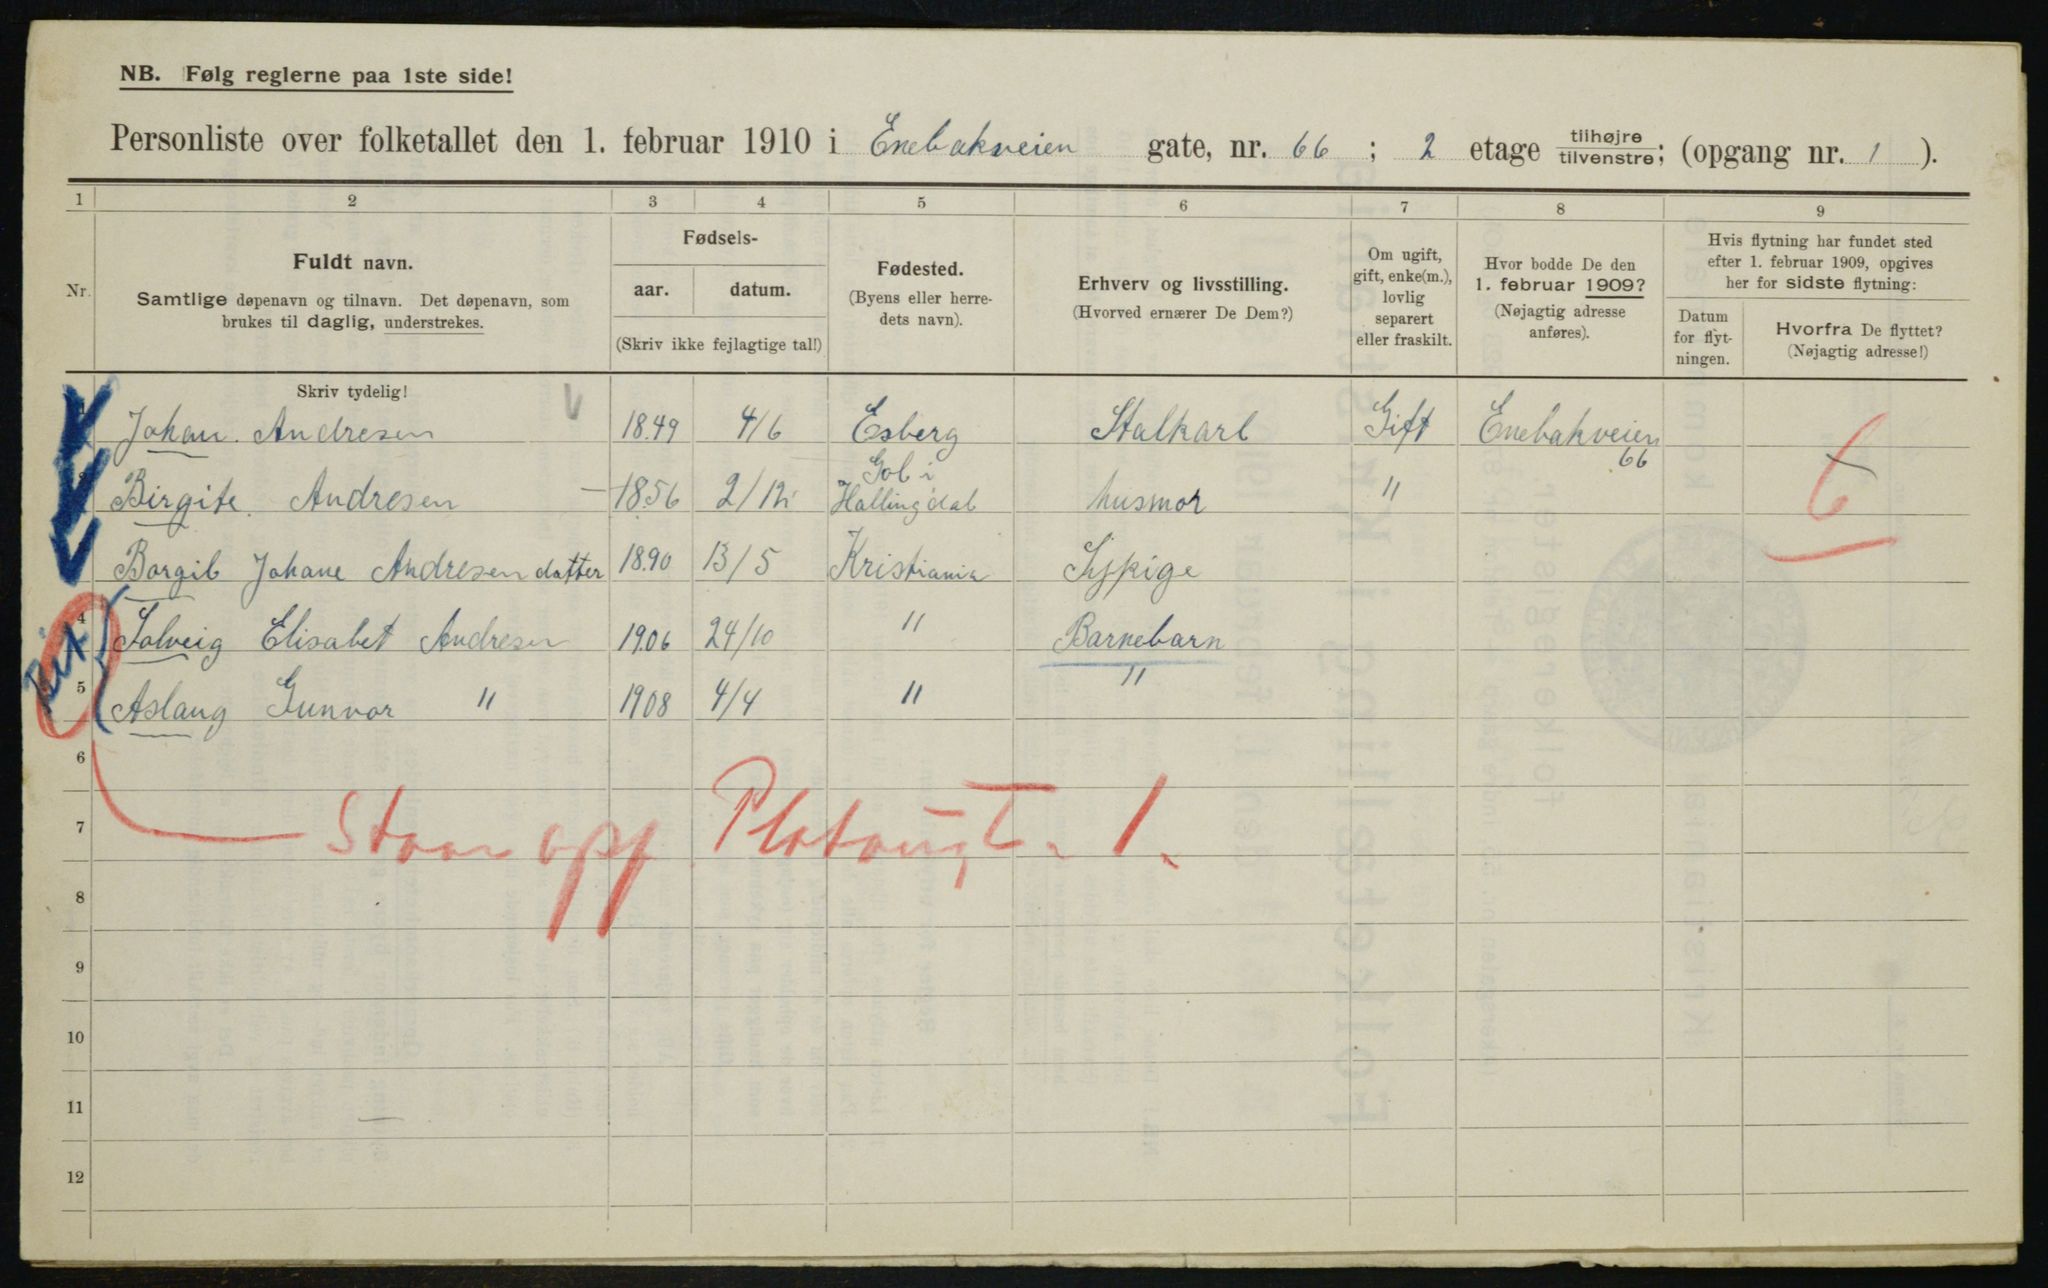 NB. Følg reglerne paa 1ste side!
Personliste over folketallet den 1. februar 1910 i Enebakveien gate, nr. 66 ; 2 etage tilhøjre tilvenstre; (opgang nr. 1 ).
1 2 3 4 5 6 7 8 9
Nr.
Fuldt navn.
Samtlige døpenavn og tilnavn. Det døpenavn, som
brukes til daglig, understrekes.
Fødsels-
aar. datum.
(Skriv ikke fejlagtige tal!)
Fødested.
(Byens eller herre-
dets navn).
Erhverv og livsstilling.
(Hvorved ernærer De Dem?)
Om ugift,
gift, enke(m.),
lovlig
separert
eller fraskilt.
Hvor bodde De den
1. februar 1909?
(Nøjagtig adresse
anføres).
Hvis flytning har fundet sted
efter 1. februar 1909, opgives
her for sidste flytning:
Datum
for flyt-
ningen.
Hvorfra De flyttet?
(Nøjagtig adresse!)
Skriv tydelig!
Johan Andresen 1849 4/6 Esberg Stalkarl Gift Enebakveien
66
Gol i
Birgite Andresen 1856 2/12 Hallingdal husmor "
Borgil Johane Andresen datter 1890 13/5 Kristiania Sypige
4 Solveig Elisabet Andresen 1906 24/10 " Barnebarn
5 Aslaug Gunvor " 1908 4/4 " "
6
6
7
8
9
10
11
12
Staar opf. 1.